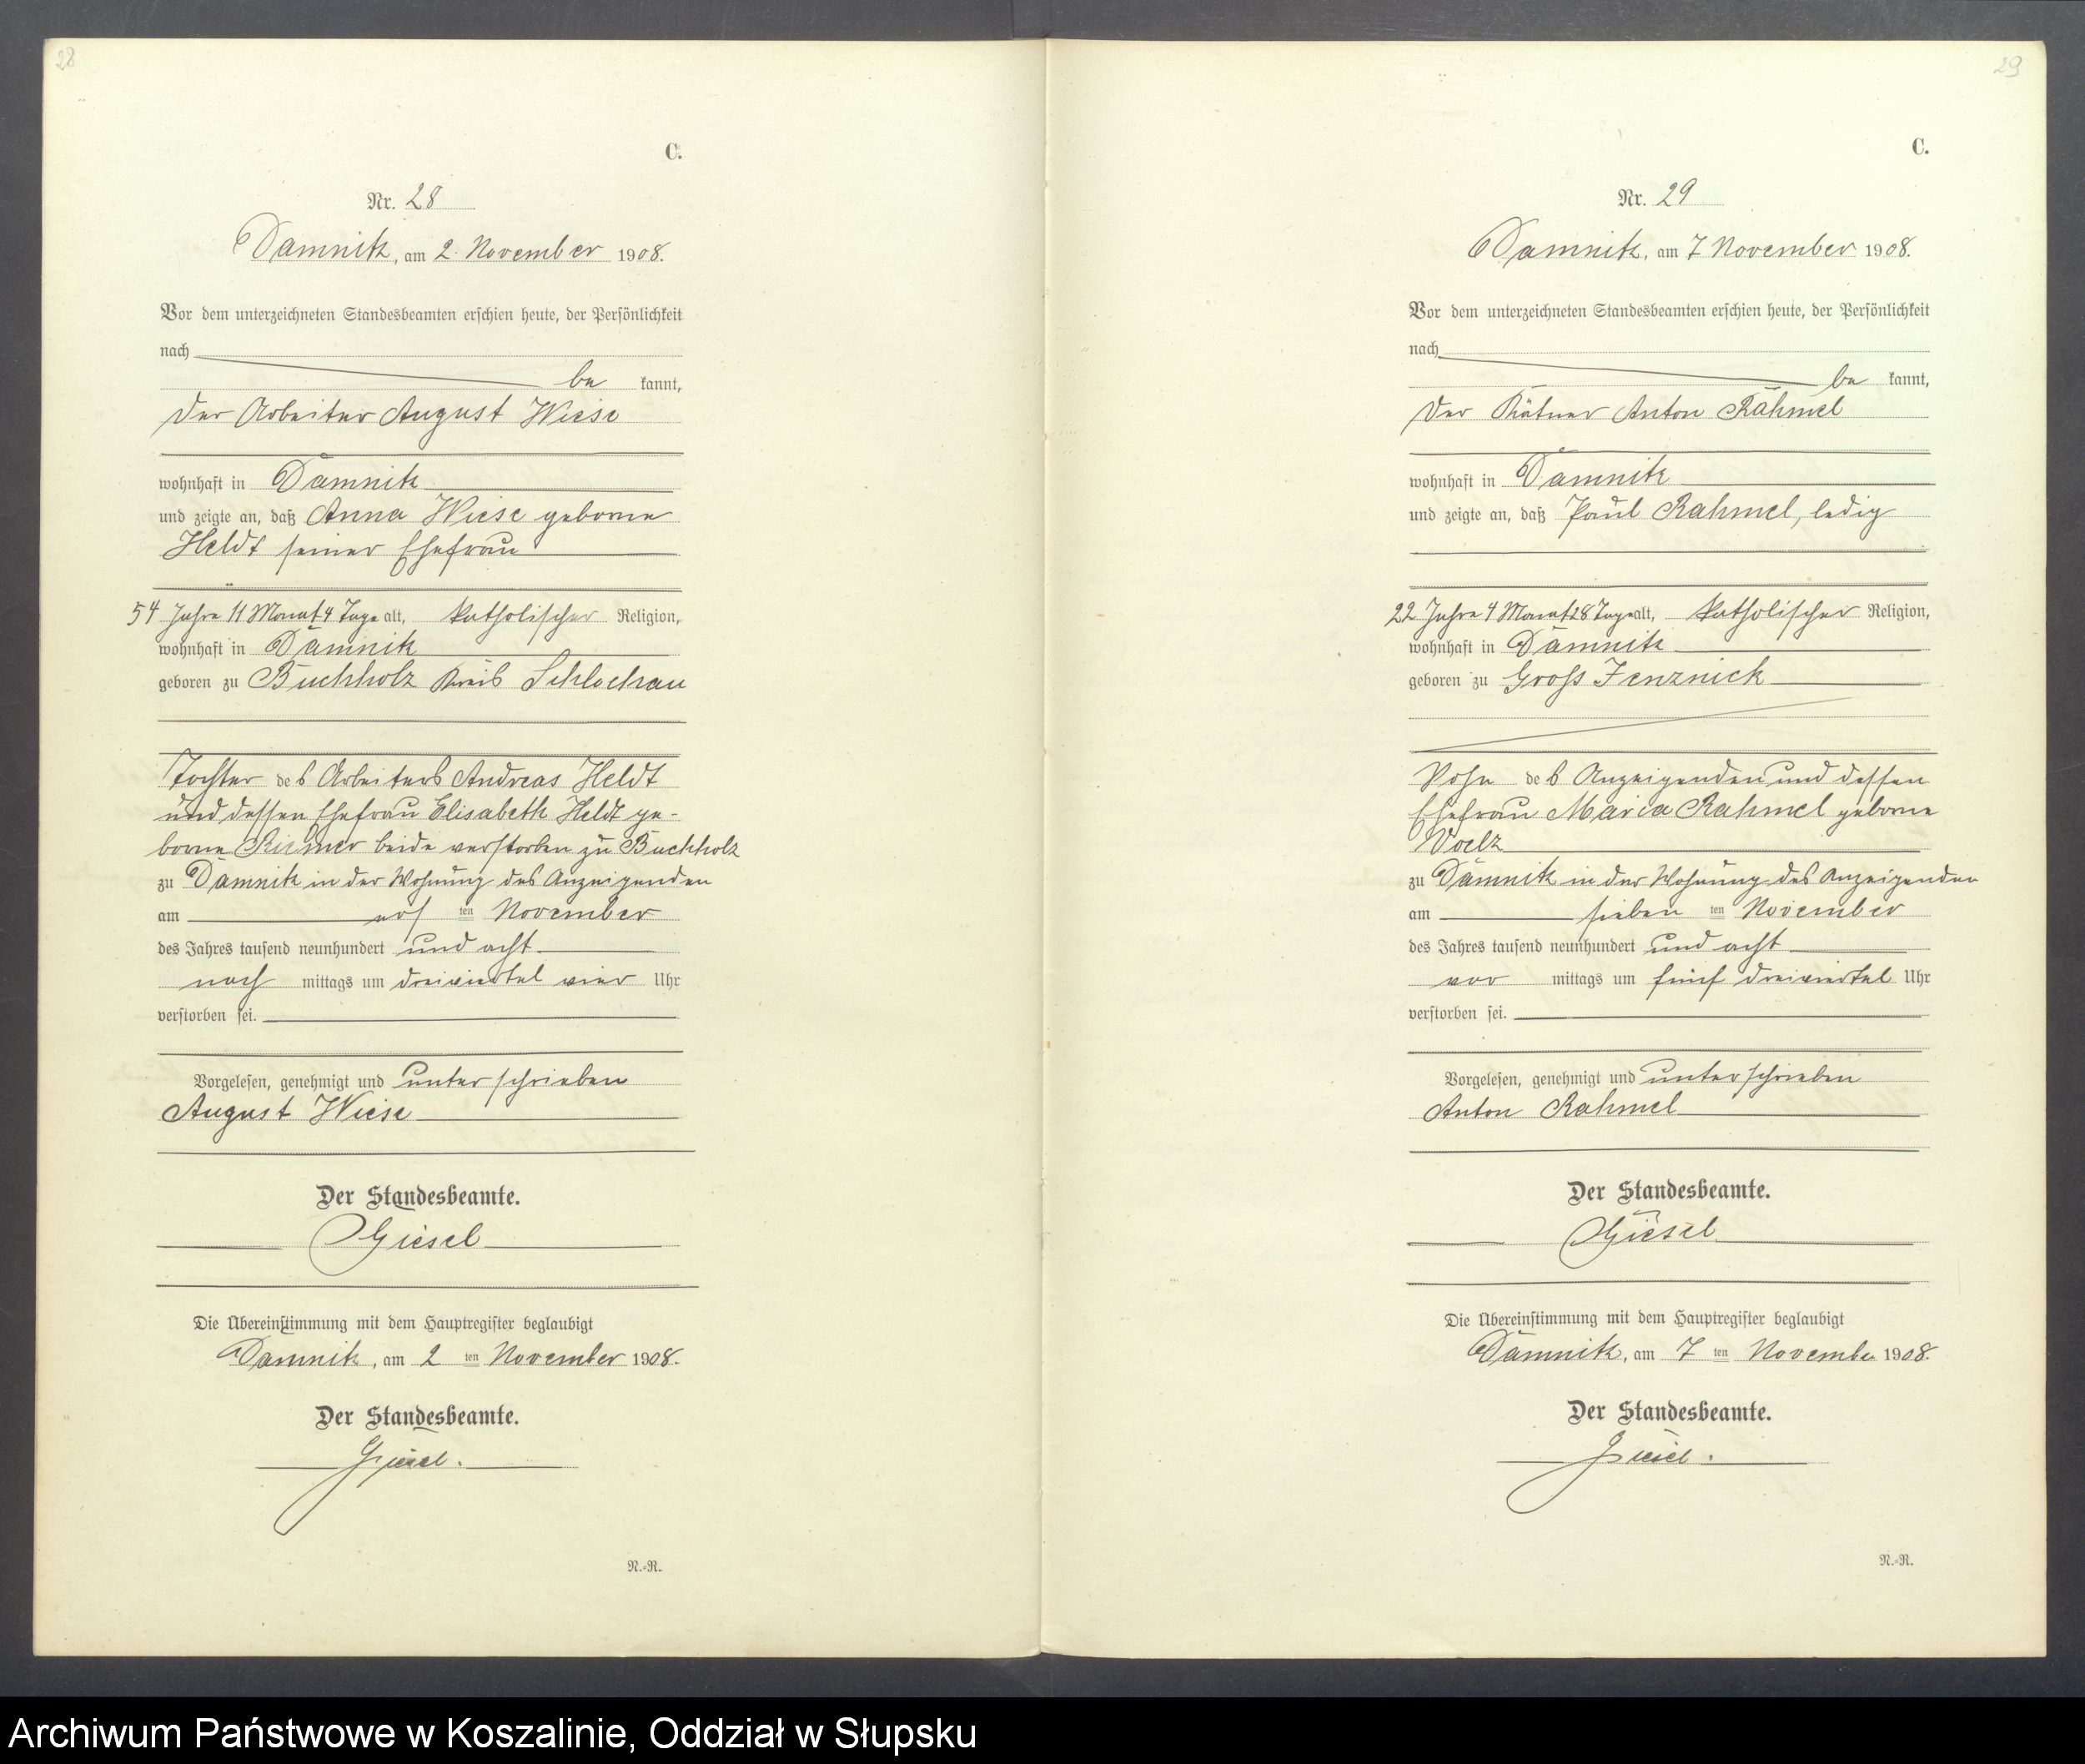 28
C.
Nr. 28
Damnitz, am 2. November 1908.
Vor dem unterzeichneten Standesbeamten erschien heute, der Persönlichkeit
nach
be kannt,
der Arbeiter August Wiese
wohnhaft in Damnitz
und zeigte an, daß Anna Wiese geborne
Heldt seiner Ehefrau
54 Jahre 11 Monat 4 Tage alt, katholischer Religion,
wohnhaft in Damnitz
geboren zu Buchholz Kreis Schlochau
Tochter des Arbeiters Andreas Heldt
und dessen Ehefrau Elisabeth Heldt ge-
borne beide verstorben zu Buchholz
zu Damnitz in der Wohnung des Anzeigenden
am ten November
des Jahres tausend neunhundert und acht
nach mittags um dreiviertel vier Uhr
verstorben sei.
Vorgelesen, genehmigt und unterschrieben
August Wiese
Der Standesbeamte.
Giesel
Die Übereinstimmung mit dem Hauptregister beglaubigt
Damnitz, am 2 ten November 1908.
Der Standesbeamte.
Giesel.
N.-R.
29
C.
Nr. 29
Damnitz, am 7 November 1908.
Vor dem unterzeichneten Standesbeamten erschien heute, der Persönlichkeit
nach
be kannt,
der Kätner Anton Rahmel
wohnhaft in Damnitz
und zeigte an, daß Paul Rahmel, ledig
22 Jahre 4 Monat 28 Tage alt, katholischer Religion,
wohnhaft in Damnitz
geboren zu Gross Jenznick
Sohn des Anzeigenden und dessen
Ehefrau Maria Rahmel geborne
Voelz
zu Damnitz in der Wohnung des Anzeigenden
am sieben ten November
des Jahres tausend neunhundert und acht
vor mittags um fünf dreiviertel Uhr
verstorben sei.
Vorgelesen, genehmigt und unterschrieben
Anton Rahmel
Der Standesbeamte.
Giesel
Die Übereinstimmung mit dem Hauptregister beglaubigt
Damnitz, am 7 ten November 1908.
Der Standesbeamte.
Giesel.
N.-R.
Archiwum Państwowe w Koszalinie, Oddział w Słupsku